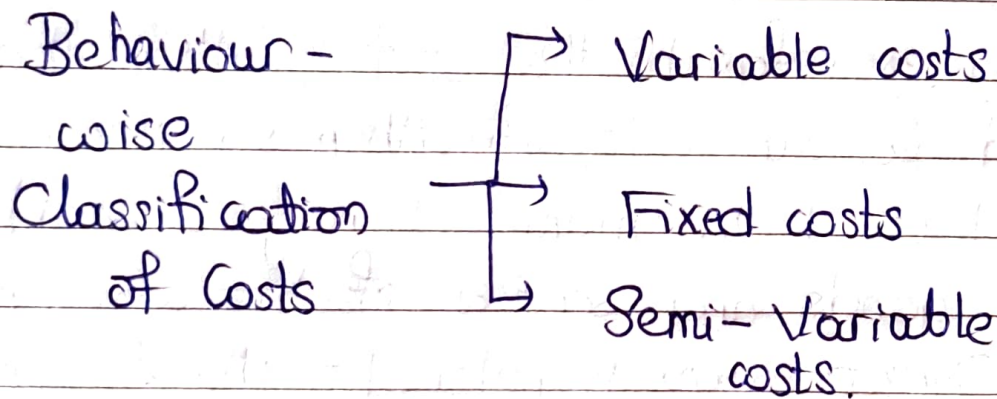 Behaviour-
wise
Classification
of Costs
Variable costs
Fixed costs
Semi-Variable
costs.